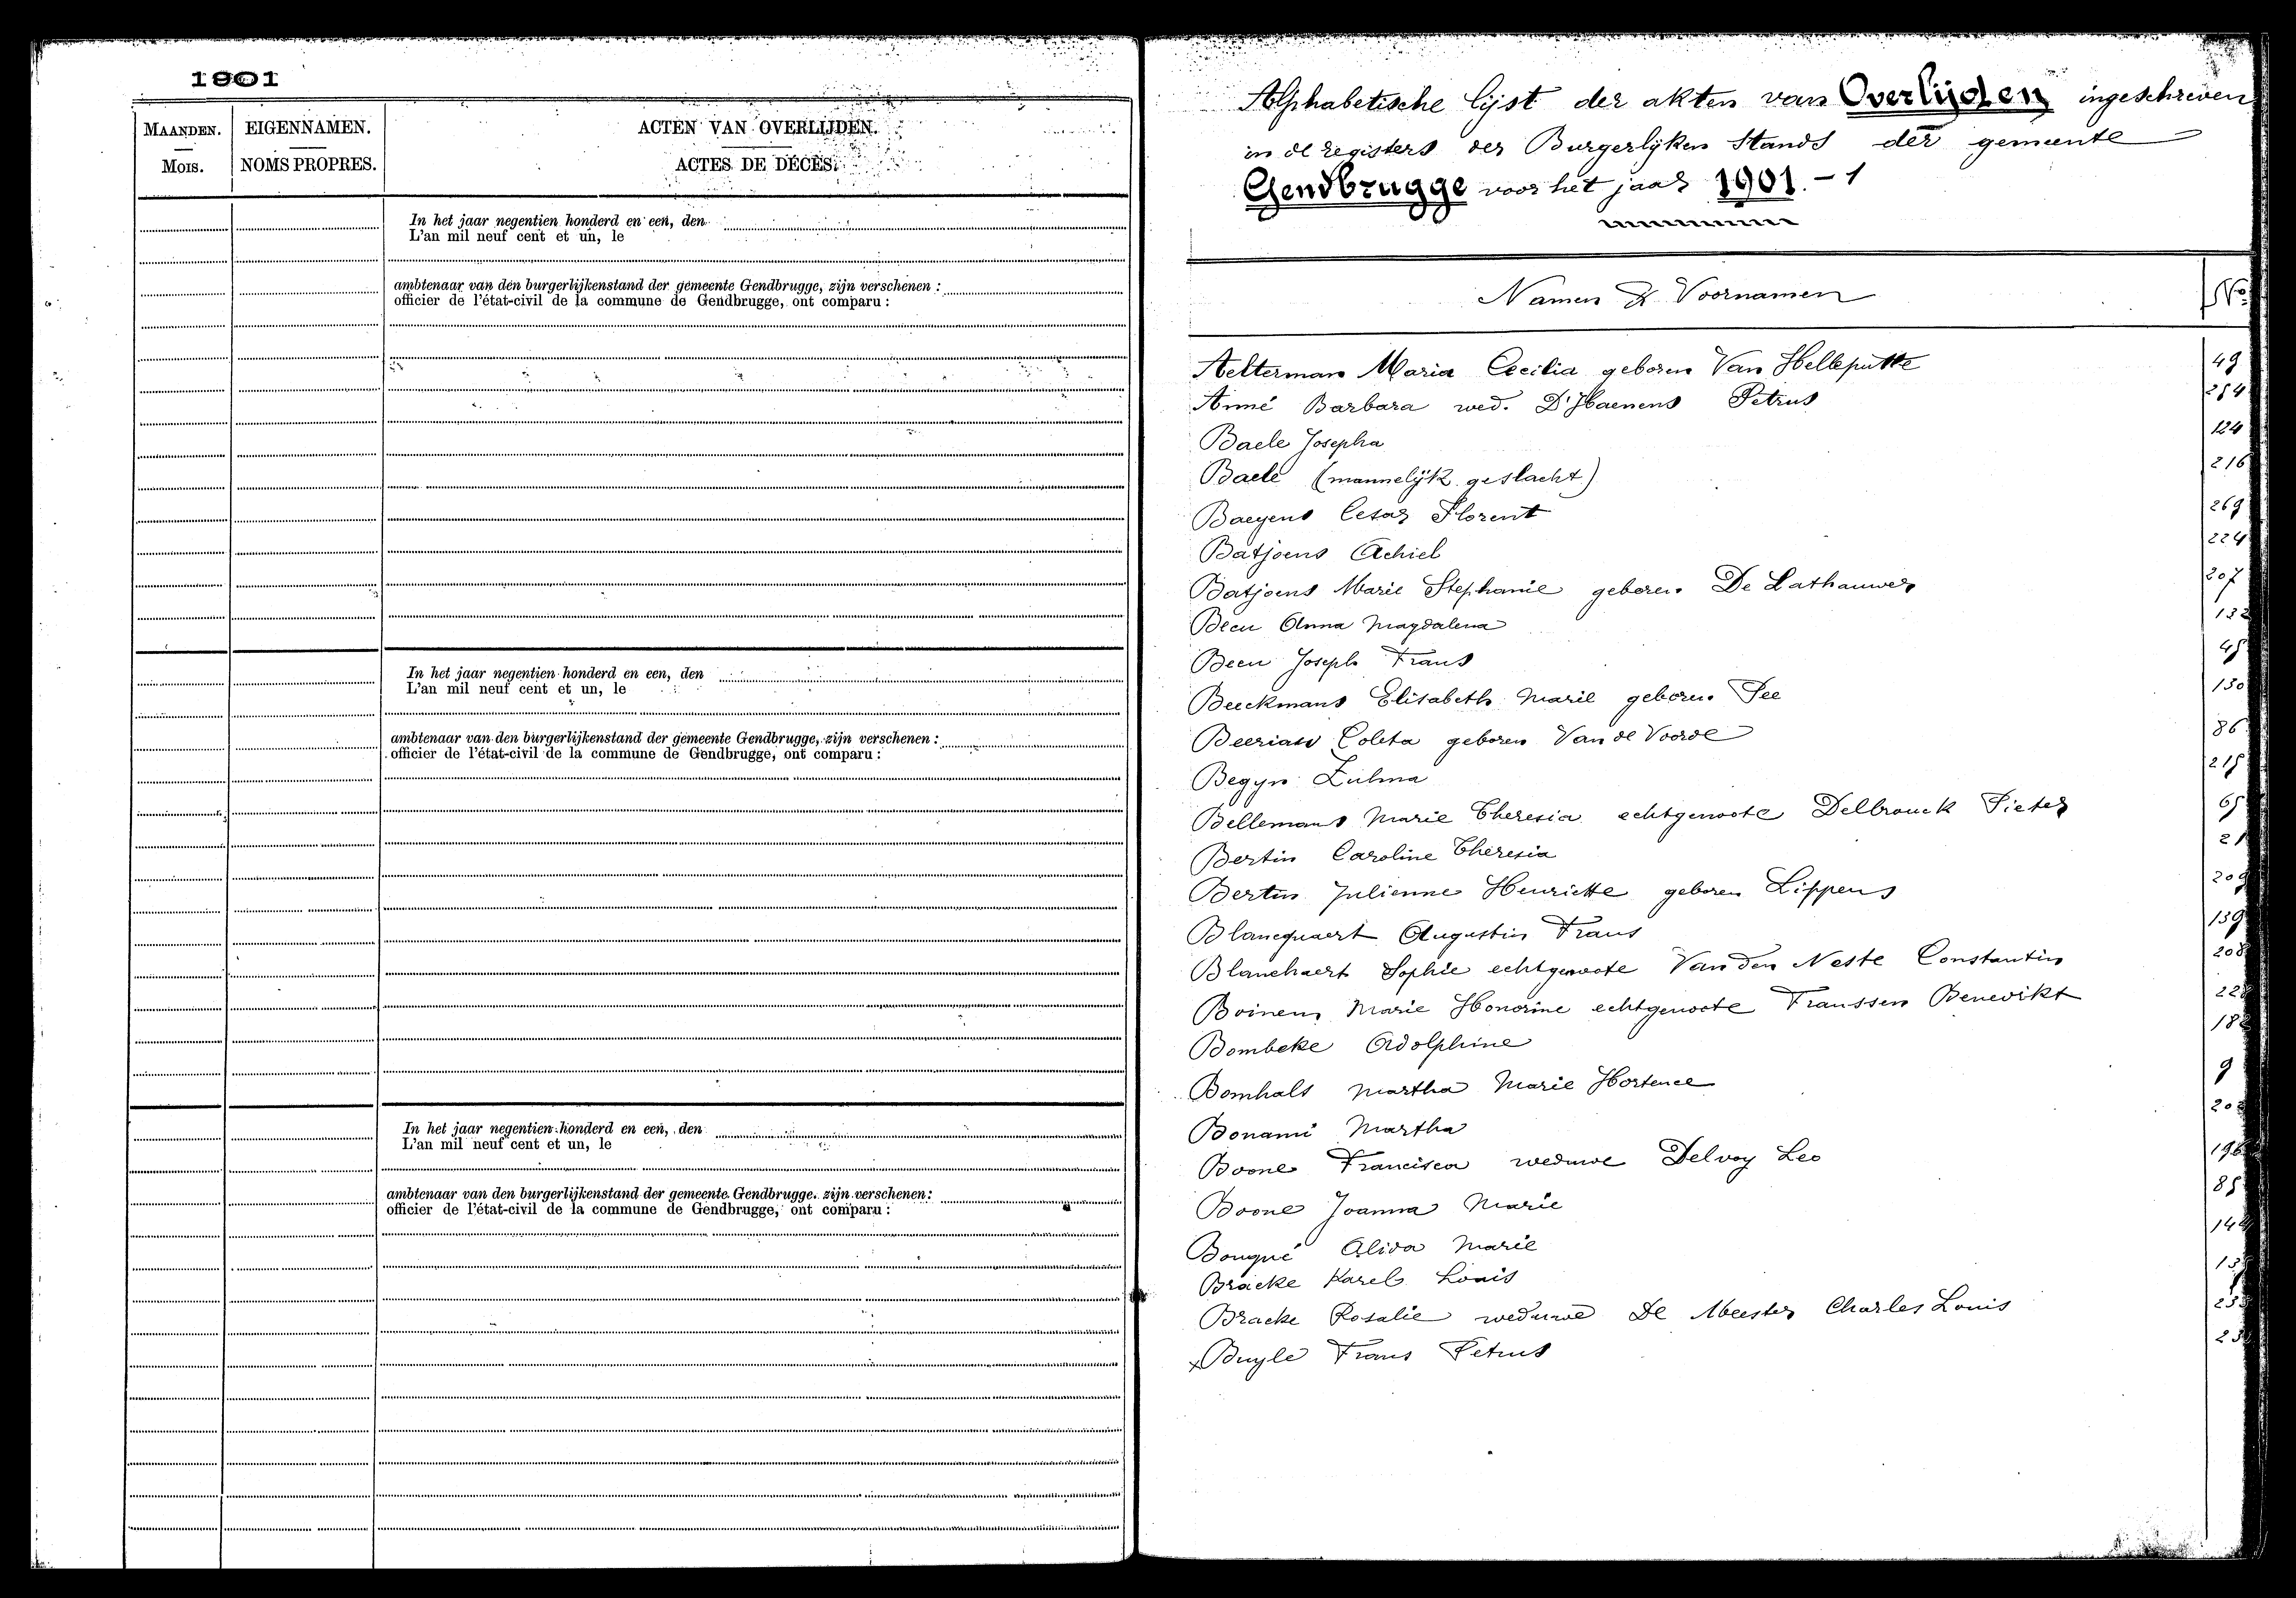 1901
MAANDEN.
Mois.
EIGENNAMEN.
NOMS PROPRES.
ACTEN VAN OVERLIJDEN.
ACTES DE DÉCÈS.
In het jaar negentien honderd en een, den
L'an mil neuf cent et un, le
ambtenaar van den burgerlijkenstand der gemeente Gendbrugge, zijn verschenen :
officier de l'état-civil de la commune de Gendbrugge, ont comparu :
In het jaar negentien honderd en een, den
L'an mil neuf cent et un, le
ambtenaar van den burgerlijkenstand der gemeente Gendbrugge, zijn verschenen :
officier de l'état-civil de la commune de Gendbrugge, ont comparu :
In het jaar negentien honderd en een, den
L'an mil neuf cent et un, le
ambtenaar van den burgerlijkenstand der gemeente Gendbrugge. zijn verschenen :
officier de l'état-civil de la commune de Gendbrugge, ont comparu :
Alphabetische lijst der akten van Overlijden ingeschreven
in de registers der Burgerlijken Stands der gemeente
Gendbrugge voor het jaar 1901. - 1
Namen & Voornamen No
Aelterman Maria Cecilia geboren Van Helleputte 49
Anné Barbara wed. D'Haenens Petrus 254
Baele Josepha 124
Baele (mannelijk geslacht) 216
Baeyens Cesar Florent 269
Batjoens Achiel 224
Batjoens Marie Stephanie geboren De Lathauwer 207
Becu Anna Magdalena 132
Becu Joseph Frans 45
Beeckmans Elisabeth Marie geboren Pee 130
Beeriaw Coleta geboren Van de Voorde 86
Begyn Zulma 215
Bellemans Marie Theresia echtgenoote Delbrouck Pieter 65
Bertin Caroline Theresia 21
Bertin Julienne Henriette geboren Lippens 209
Blancquaert Augustin Frans 139
Blanchaert Sophie echtgenoote Van den Neste Constantin 208
Boinem Marie Honorine echtgenoote Franssen Benedikt
Bombeke Adolphine 182
Bomhals Martha Marie Hortence 9
Bonami Martha
Boone Francisca weduwe Delvoy Leo
Boone Joanna Marie 85
Bouqué Alida Marie
Bracke Karel Louis
Bracke Rosalie weduwe De Meester Charles Louis
x Buyle Frans Petrus